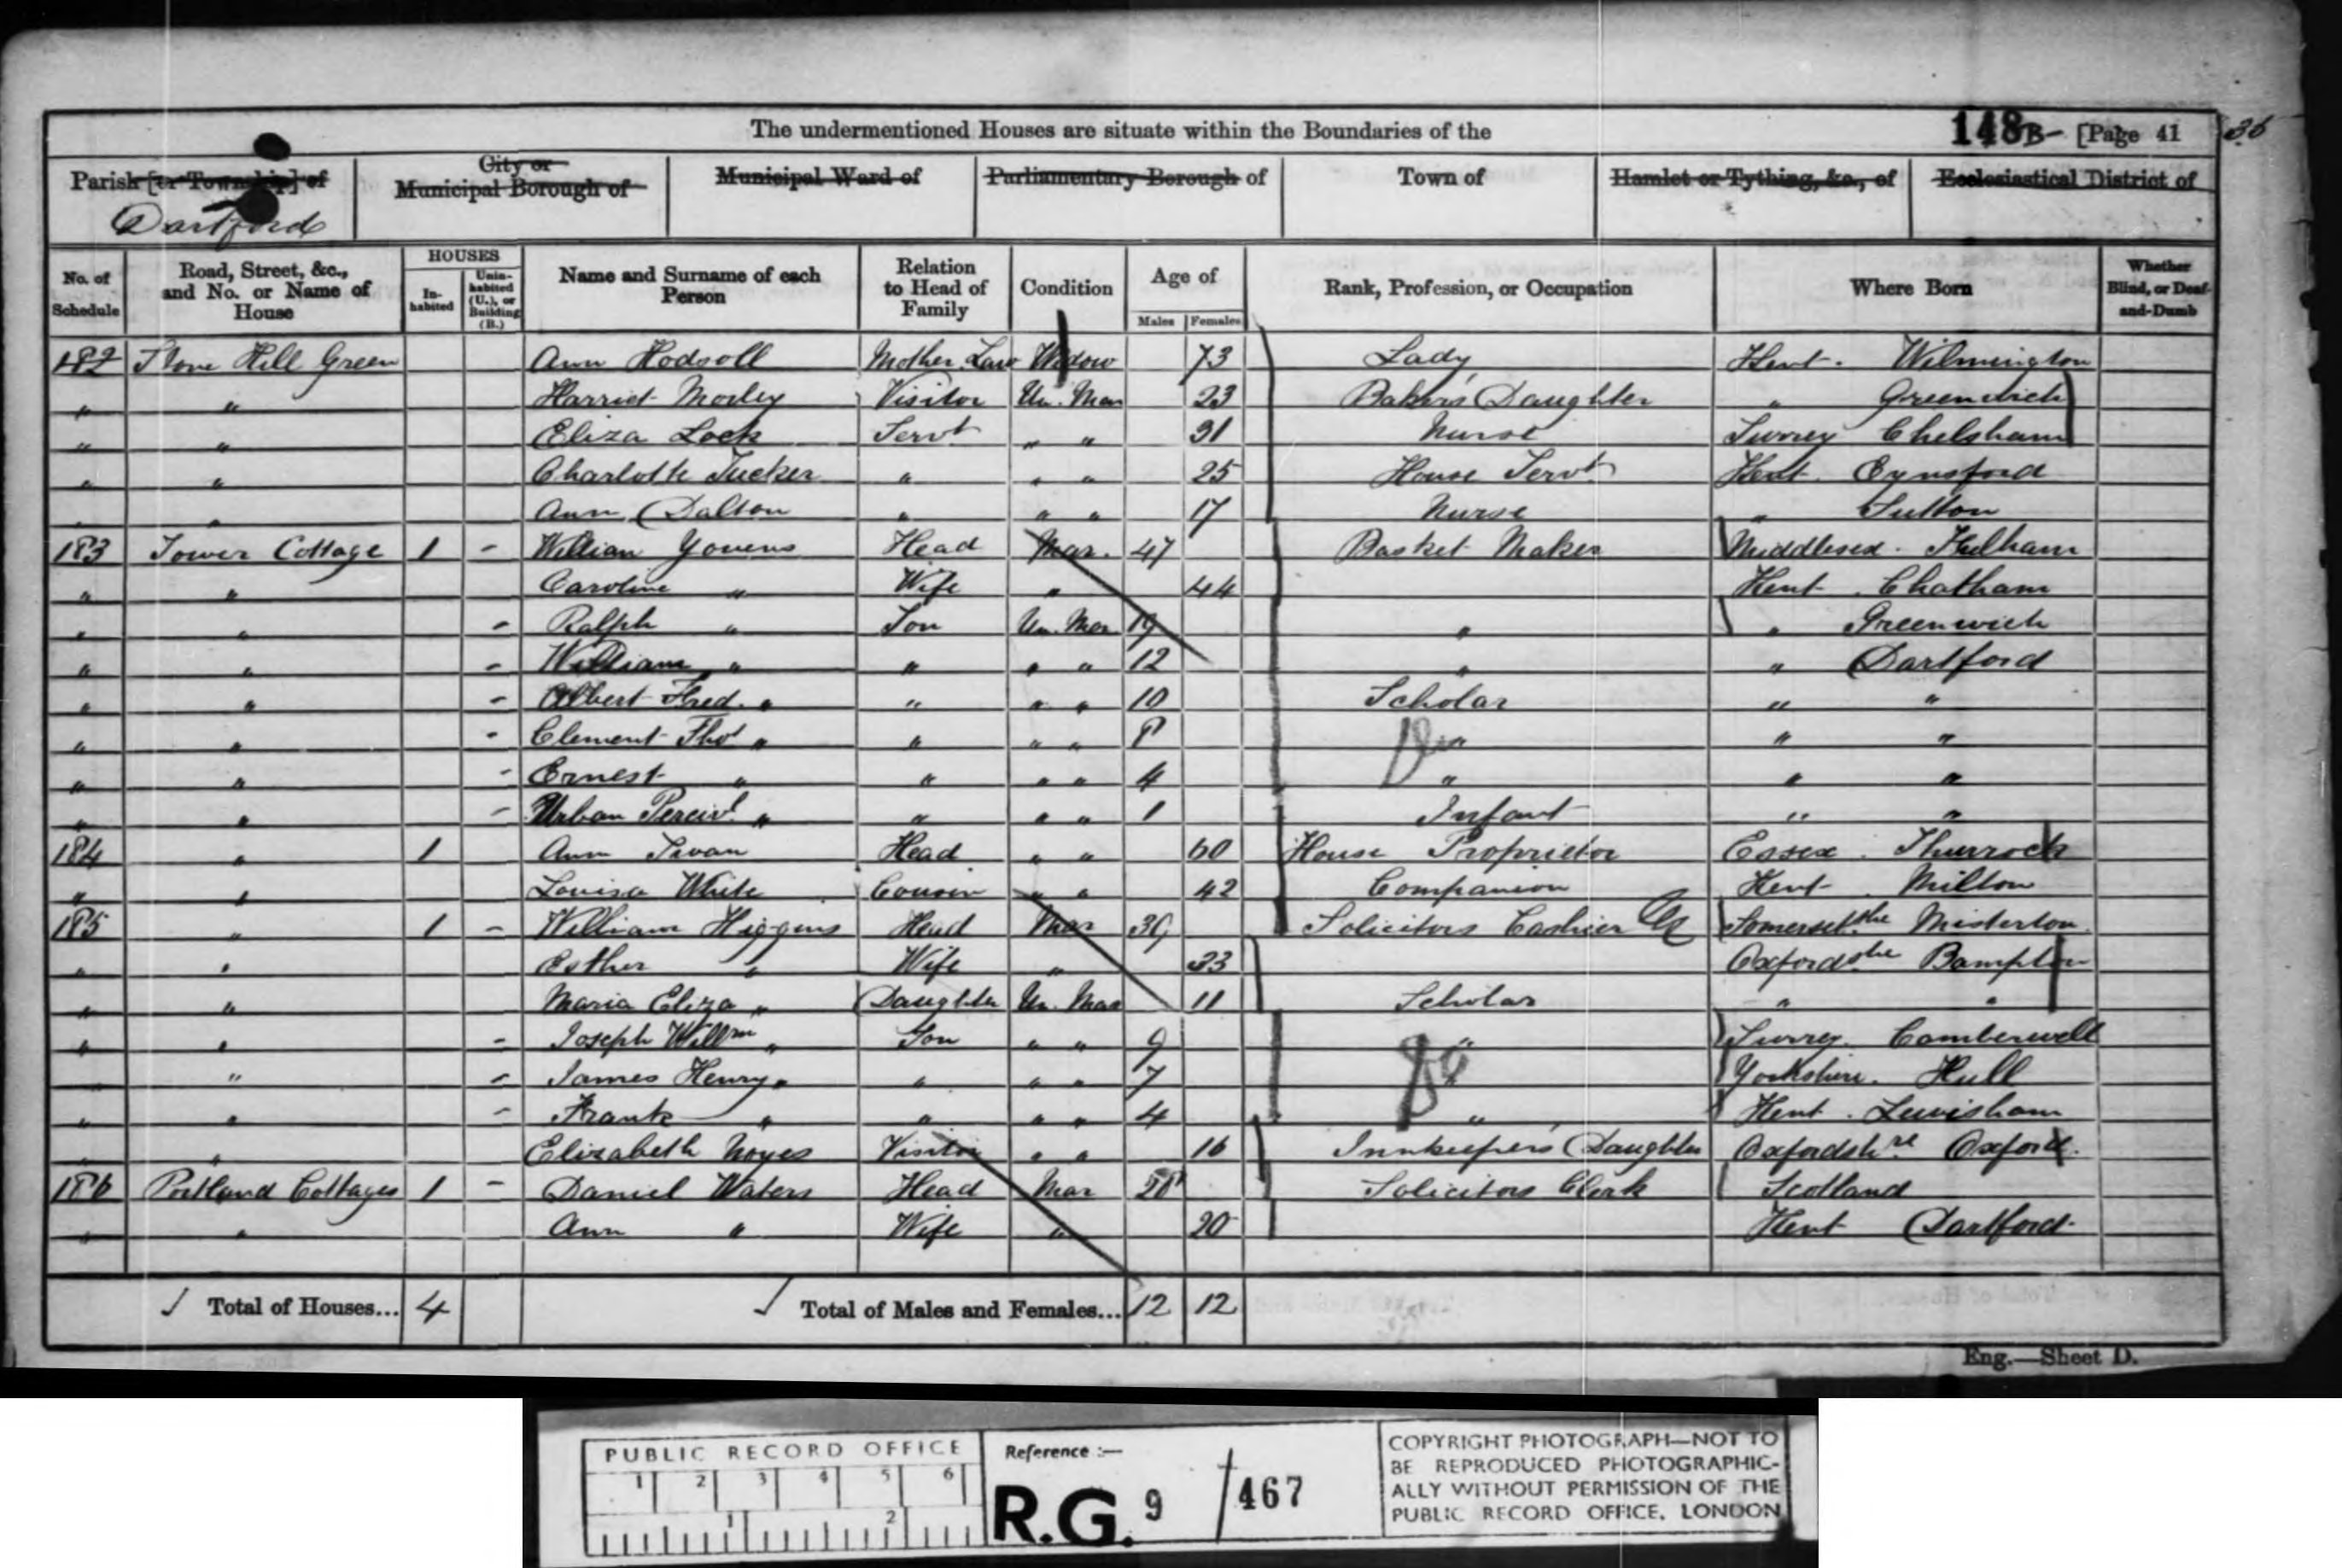 The undermentioned Houses are situate within the Boundaries of the 148B [Page 41 36
Parish [or Township] of Dartford City or Municipal Borough of Municipal Ward of Parliamentary Borough of Town of Hamlet or Tything, &c., of Ecclesiastical District of
No. of Schedule Road, Street, &c., and No. or Name of House HOUSES In-habited Unin-habited (U.), or Building (B.) Name and Surname of each Person Relation to Head of Family Condition Age of Males Females Rank, Profession, or Occupation Where Born Whether Blind, or Deaf-and-Dumb
182 Hill Green Ann Hodsoll Mother Law Widow 73 Lady Kent. Wilmington
" " Harriet Morley Visitor Un. Mar 23 Baker's Daughter " Greenwich
" " Eliza Lock Servt " " 31 Nurse Surrey Chelsham
" " Charlotte Tucker " " " 25 House Servt Kent Eynsford
" " Ann Dalton " " " 17 Nurse " Sutton
183 Tower Cottage 1 - William Youens Head Mar. 47 Basket Maker Middlesex. Fulham
" " Caroline " Wife " 44 Kent. Chatham
" " - Ralph " Son Un. Mar 19 " " Greenwich
" " - William " " " " 12 " " Dartford
" " - Albert Fred. " " " " 10 Scholar " "
" " - Clement Thos " " " " 8 " " "
" " - Ernest " " " " 4 " " "
" " - Urban Percivl " " " " 1 Infant " "
184 " 1 Ann Head " " 60 House Proprietor Essex. Thurrock
" " Louisa White Cousin " " 42 Companion Kent. Milton
185 " 1 - William Higgins Head Mar 39 Solicitors Cashier Somersetshe Misterton
" " Esther " Wife " 33 Oxfordshe Bampton
" " Maria Eliza " Daughter Un. Mar 11 Scholar " "
" " - Joseph Willm " Son " " 9 " Surrey. Camberwell
" " - James Henry " " " " 7 " Yorkshire. Hull
" " - Frank " " " " 4 " Kent. Lewisham
" " Elizabeth Noyes Visitor " " 16 Innkeepers Daughter Oxfordshire Oxford.
186 Portland Cottages 1 - Daniel Waters Head Mar 28 Solicitors Clerk Scotland
" " Ann " Wife " 20 Kent Dartford
Total of Houses... 4 Total of Males and Females... 12 12
Eng.—Sheet D.
PUBLIC RECORD OFFICE
1 2 3 4 5 6
1 2
Reference :—
R.G. 9 / 467
COPYRIGHT PHOTOGRAPH—NOT TO
BE REPRODUCED PHOTOGRAPHIC-
ALLY WITHOUT PERMISSION OF THE
PUBLIC RECORD OFFICE, LONDON